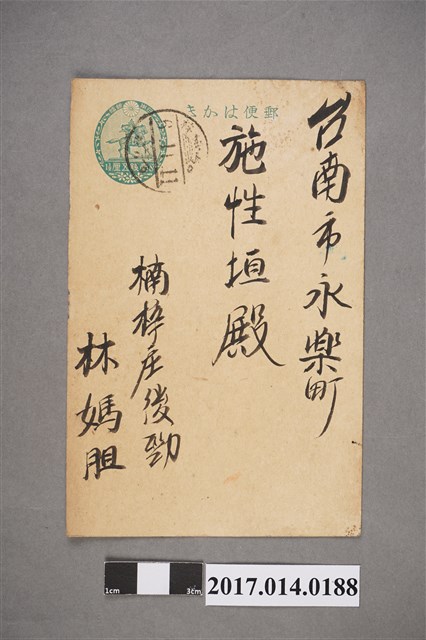 郵便はかき
台南市永樂町
施性垣殿
楠梓庄後勁
林媽胆
1cm
3cm
2017.014.0188